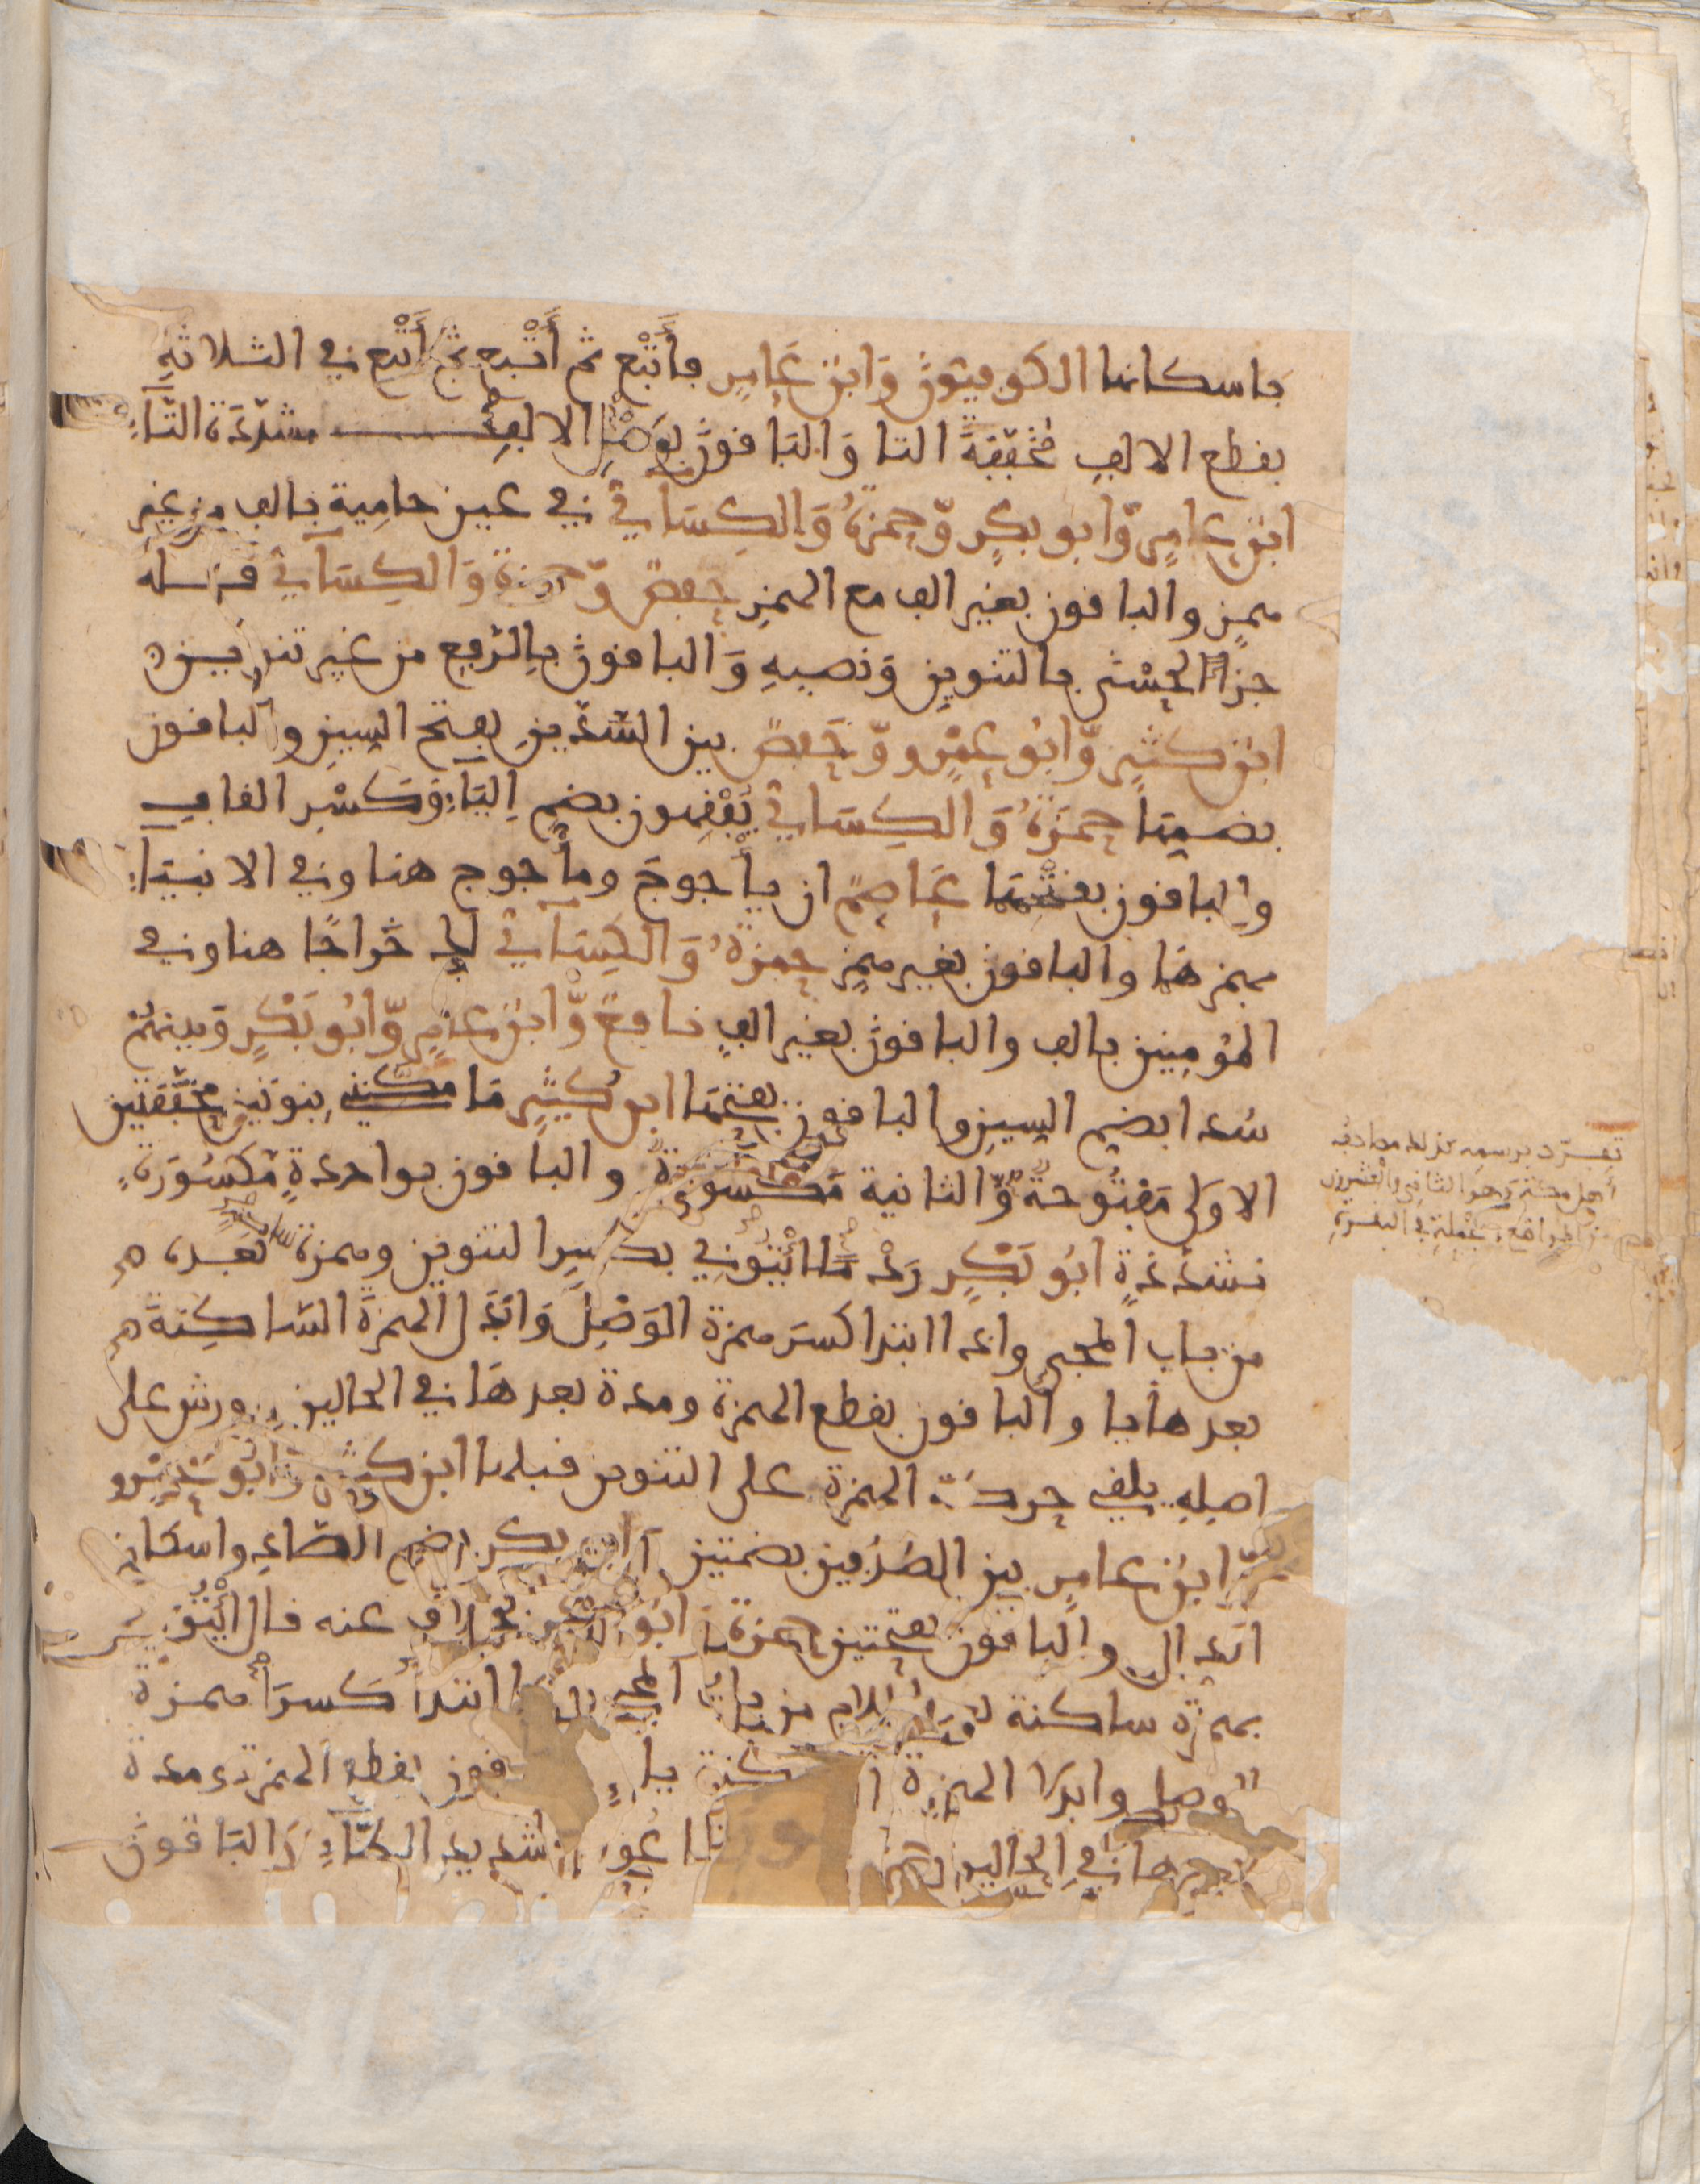 باسكانها الكوفيون وَابن عَامِرٍ فأَتْبَع ثم أَتْبع ثم أَتْبع في الثلاثةِ
بقطع الالفِ مُخَفّفَةَ التا وَالباقونَ بوَصْلِ الالفِ مشدّدَة التّاءِ
ابن عامِرٍ وّابو بكرٍ وّحمزةُ وَالكِسَاءيُّ في عين حامِية بالف من غيرِ
همزٍ والباقون بغير الف مع الهمزِ حفصٌ وّحمزة وَالكِسَاءيُّ فَله
جزاءً الحُسْنى بالتنوينِ وَنصبِهِ وَالباقونَ بِالرّفع من غير تنوين
ابن كثيرٍ وّابُو عمْرٍو وّحَفصٌ بين السّدّينِ بفتح السِينِ والباقون
بضمها حمزَةُ وَالكِسَاءيُّ يُفْقِهون بضمِ اليَاءِ وَكسْرِ القافِ
والباقون بفتحهما عَاصِمٌ ان يأجوجَ ومأجوج هنا وفي الانبيَاءِ
بهمزهَا والباقونَ بغير همزٍ حمزةُ وَالكِسَاءيُّ لك خَراجًا هنا وفي
المؤمِنين بالف والباقونَ بغير الفٍ نافعٌ وّابن عامِرٍ وّابُو بَكْرٍ وبينهُمْ
سُدا بضمِ السِينِ والباقون بفتحها ابن كثيرٍ مَا مَكَّنَنِي بِنونَيْنِ مخفّفتين
الاولى مَفْتُوحةٌ وّالثانية مَكسورَةٌ والباقون بواحدةٍ مَّكسُورَةٍ
مشدّدةٍ ابُو بَكْرٍ رَدْمًا ائْتُونِي بكسرِ التنوين وهمزة ساكنةٍ بَعْدَه
من باب المجي واذا ابتدا كسرَ همزةَ الوَصْلِ وَابْدَلَ الهمزةَ السّاكِنةَ
بعدها يا والباقون بقطع الهمزة ومدة بعدهَا في الحالين وورش على
اصلِهِ يلقي حركَةَ الهمزة على التنوين قبلها ابن كثيرٍ وّابُو عَمْرٍو
وّابن عامرٍ بين الصُدُفين بضمتين ابو بكر بضم الصّادِ واسكانِ
الدالِ والباقون بفتحتين حمزةُ وابُو بكر بخلافٍ عنه قال ائْتُونِي
بهمزة ساكنة بعد اللام من باب المجي واذا ابتدأ كسرَا همزة
الوصل وابدلا الهمزة الساكنة ياءً والباقون بقطع الهمزة ومدة
بعدها في الحالين حمزة فما اسطاعوا بتشديد الطّاءِ وَالبَاقونَ
تفرد برسمه كذلك مصاحف
أهل مكة وهو الثاني والعشرون